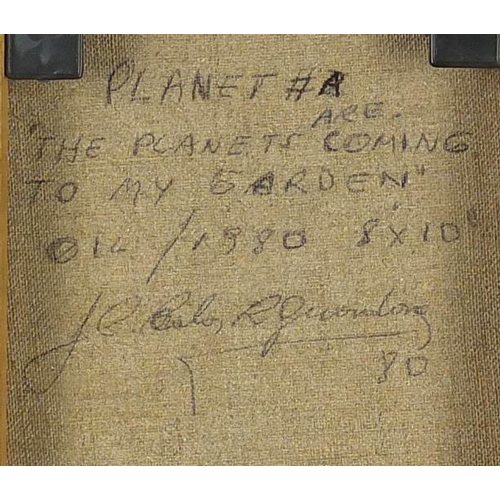 PLANET #A
ARE.
"THE PLANETS COMING
TO MY GARDEN"
OIL / 1980 8x10"
80